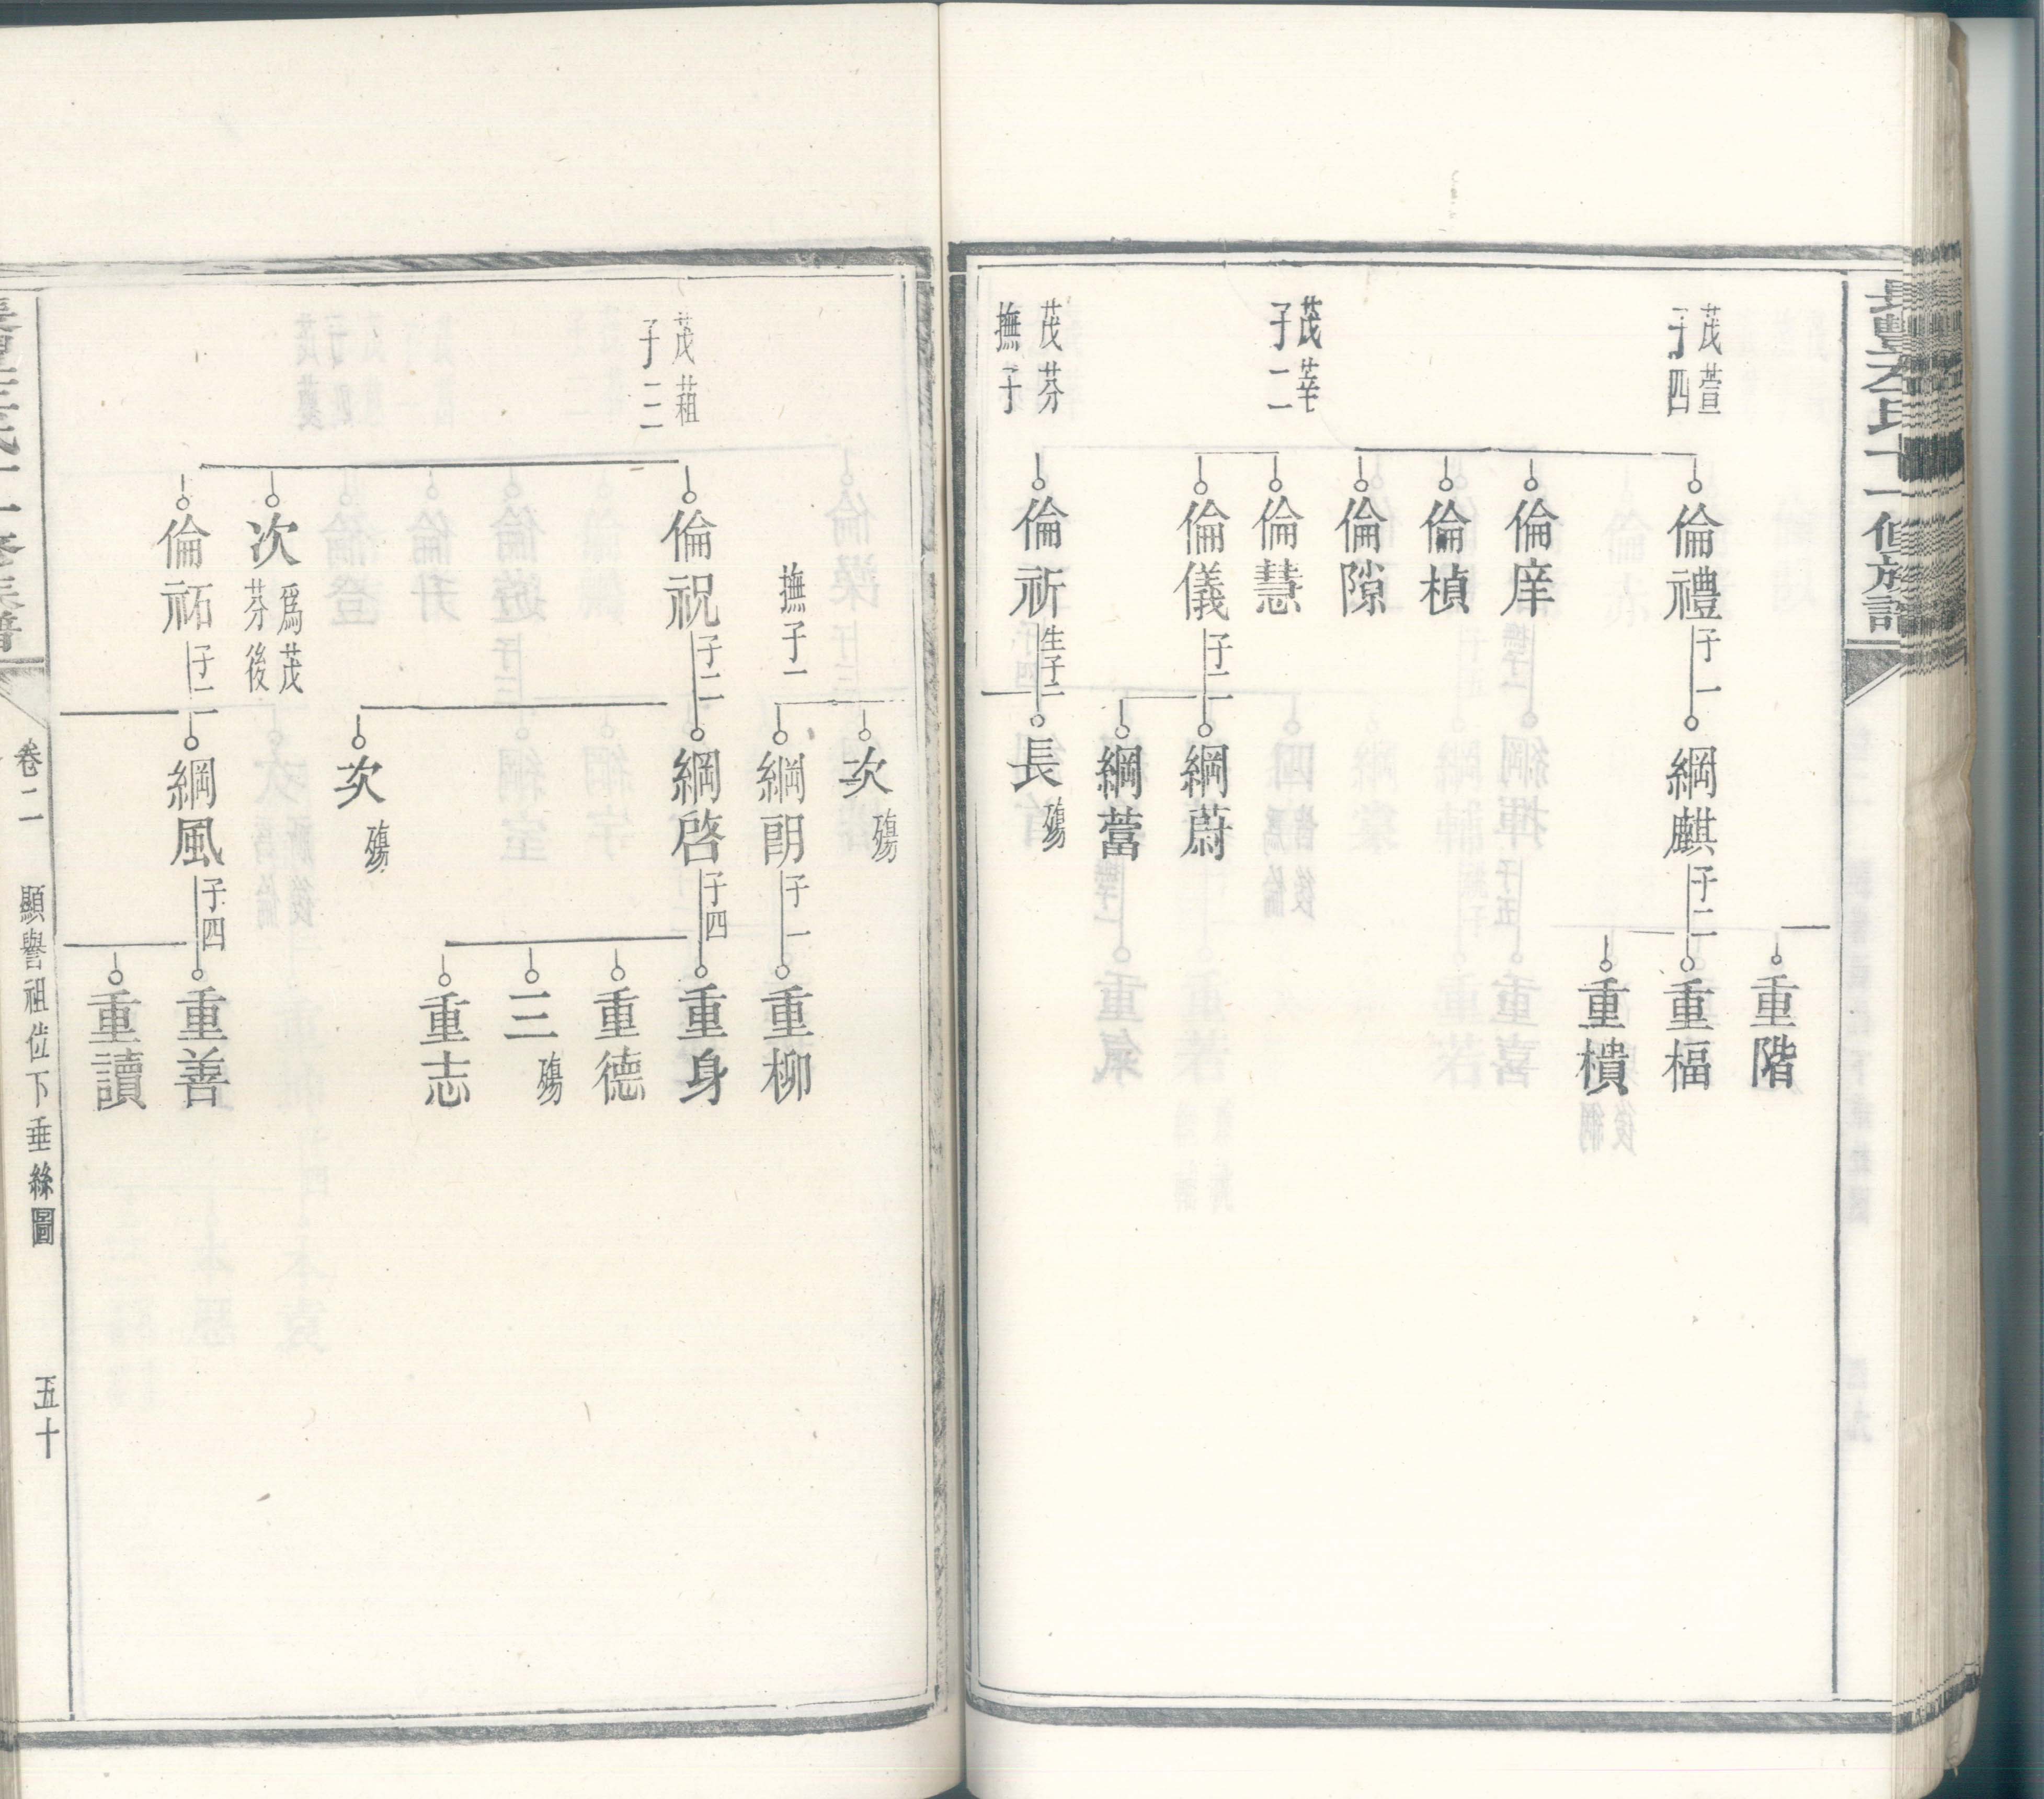 茂萱
子四
茂莘
子二
茂芬
撫子
倫禮
子一
倫庠
倫楨
倫隙
倫慧
倫儀
子二
倫祈
生子二
綱麒
子二
綱蔚
綱蒿
長
殤
重階
重楅
重樻
茂葅
子三
撫子一
倫祝
子二
次
爲茂
芬後
倫祏
子二
次
殤
綱朗
子一
綱啓
子四
次
殤
綱風
子四
重柳
重身
重德
三
殤
重志
重善
重讀
卷二
顯譽祖位下垂絲圖
五十